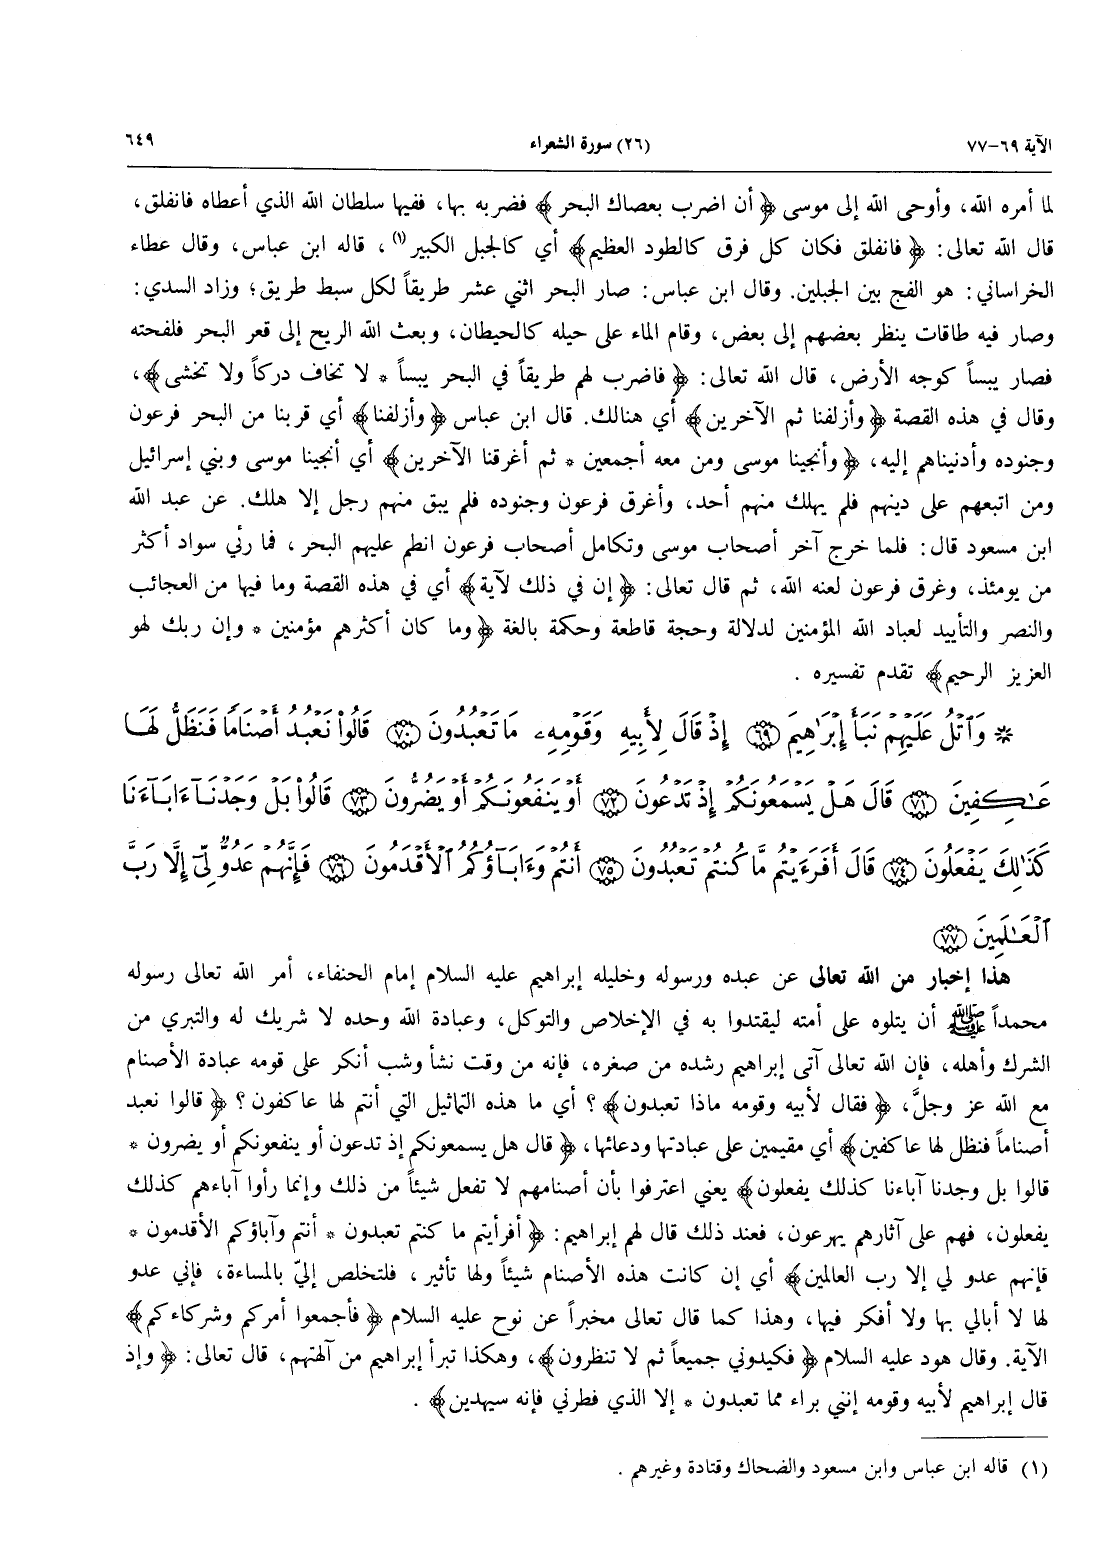 الآية ٦٩-٧٧ (٢٦) سورة الشعراء ٦٤٩
لما أمره الله، وأوحى الله إلى موسى ﴿أن اضرب بعصاك البحر﴾ فضربه بها، ففيها سلطان الله الذي أعطاه فانفلق،
قال الله تعالى: ﴿فانفلق فكان كل فرق كالطود العظيم﴾ أي كالجبل الكبير(١)، قاله ابن عباس، وقال عطاء
الخراساني: هو الفج بين الجبلين. وقال ابن عباس: صار البحر اثني عشر طريقاً لكل سبط طريق؛ وزاد السدي:
وصار فيه طاقات ينظر بعضهم إلى بعض، وقام الماء على حيله كالحيطان، وبعث الله الريح إلى قعر البحر فلفحته
فصار يبساً كوجه الأرض، قال الله تعالى: ﴿فاضرب لهم طريقاً في البحر يبساً * لا تخاف دركاً ولا تخشى﴾،
وقال في هذه القصة ﴿وأزلفنا ثم الآخرين﴾ أي هنالك. قال ابن عباس ﴿وأزلفنا﴾ أي قربنا من البحر فرعون
وجنوده وأدنيناهم إليه، ﴿وأنجينا موسى ومن معه أجمعين * ثم أغرقنا الآخرين﴾ أي أنجينا موسى وبني إسرائيل
ومن اتبعهم على دينهم فلم يهلك منهم أحد، وأغرق فرعون وجنوده فلم يبق منهم رجل إلا هلك. عن عبد الله
ابن مسعود قال: فلما خرج آخر أصحاب موسى وتكامل أصحاب فرعون انطم عليهم البحر، فما رأي سواد أكثر
من يومئذ، وغرق فرعون لعنه الله، ثم قال تعالى: ﴿إن في ذلك لآية﴾ أي في هذه القصة وما فيها من العجائب
والنصر والتأييد لعباد الله المؤمنين لدلالة وحجة قاطعة وحكمة بالغة ﴿وما كان أكثرهم مؤمنين * وإن ربك لهو
العزيز الرحيم﴾ تقدم تفسيره .
* وَٱتْلُ عَلَيْهِمْ نَبَأَ إِبْرَٰهِيمَ ٦٩ إِذْ قَالَ لِأَبِيهِ وَقَوْمِهِۦ مَا تَعْبُدُونَ ٧٠ قَالُوا۟ نَعْبُدُ أَصْنَامًا فَنَظَلُّ لَهَا
عَٰكِفِينَ ٧١ قَالَ هَلْ يَسْمَعُونَكُمْ إِذْ تَدْعُونَ ٧٢ أَوْ يَنفَعُونَكُمْ أَوْ يَضُرُّونَ ٧٣ قَالُوا۟ بَلْ وَجَدْنَآ ءَابَآءَنَا
كَذَٰلِكَ يَفْعَلُونَ ٧٤ قَالَ أَفَرَءَيْتُم مَّا كُنتُمْ تَعْبُدُونَ ٧٥ أَنتُمْ وَءَابَآؤُكُمُ ٱلْأَقْدَمُونَ ٧٦ فَإِنَّهُمْ عَدُوٌّ لِّىٓ إِلَّا رَبَّ
ٱلْعَٰلَمِينَ ٧٧
هذا إخبار من الله تعالى عن عبده ورسوله وخليله إبراهيم عليه السلام إمام الحنفاء، أمر الله تعالى رسوله
محمداً ﷺ أن يتلوه على أمته ليقتدوا به في الإخلاص والتوكل، وعبادة الله وحده لا شريك له والتبري من
الشرك وأهله، فإن الله تعالى آتى إبراهيم رشده من صغره، فإنه من وقت نشأ وشب أنكر على قومه عبادة الأصنام
مع الله عز وجلَّ، ﴿فقال لأبيه وقومه ماذا تعبدون﴾؟ أي ما هذه التماثيل التي أنتم لها عاكفون؟ ﴿قالوا نعبد
أصناماً فنظل لها عاكفين﴾ أي مقيمين على عبادتها ودعائها، ﴿قال هل يسمعونكم إذ تدعون أو ينفعونكم أو يضرون *
قالوا بل وجدنا آباءنا كذلك يفعلون﴾ يعني اعترفوا بأن أصنامهم لا تفعل شيئاً من ذلك وإنما رأوا آباءهم كذلك
يفعلون، فهم على آثارهم يهرعون، فعند ذلك قال لهم إبراهيم: ﴿أفرأيتم ما كنتم تعبدون * أنتم وآباؤكم الأقدمون *
فإنهم عدو لي إلا رب العالمين﴾ أي إن كانت هذه الأصنام شيئاً ولها تأثير، فلتخلص إليّ بالمساءة، فإني عدو
لها لا أبالي بها ولا أفكر فيها، وهذا كما قال تعالى مخبراً عن نوح عليه السلام ﴿فأجمعوا أمركم وشركاءكم﴾
الآية. وقال هود عليه السلام ﴿فكيدوني جميعاً ثم لا تنظرون﴾، وهكذا تبرأ إبراهيم من آلهتهم، قال تعالى: ﴿وإذ
قال إبراهيم لأبيه وقومه إنني براء مما تعبدون * إلا الذي فطرني فإنه سيهدين﴾ .
(١) قاله ابن عباس وابن مسعود والضحاك وقتادة وغيرهم .